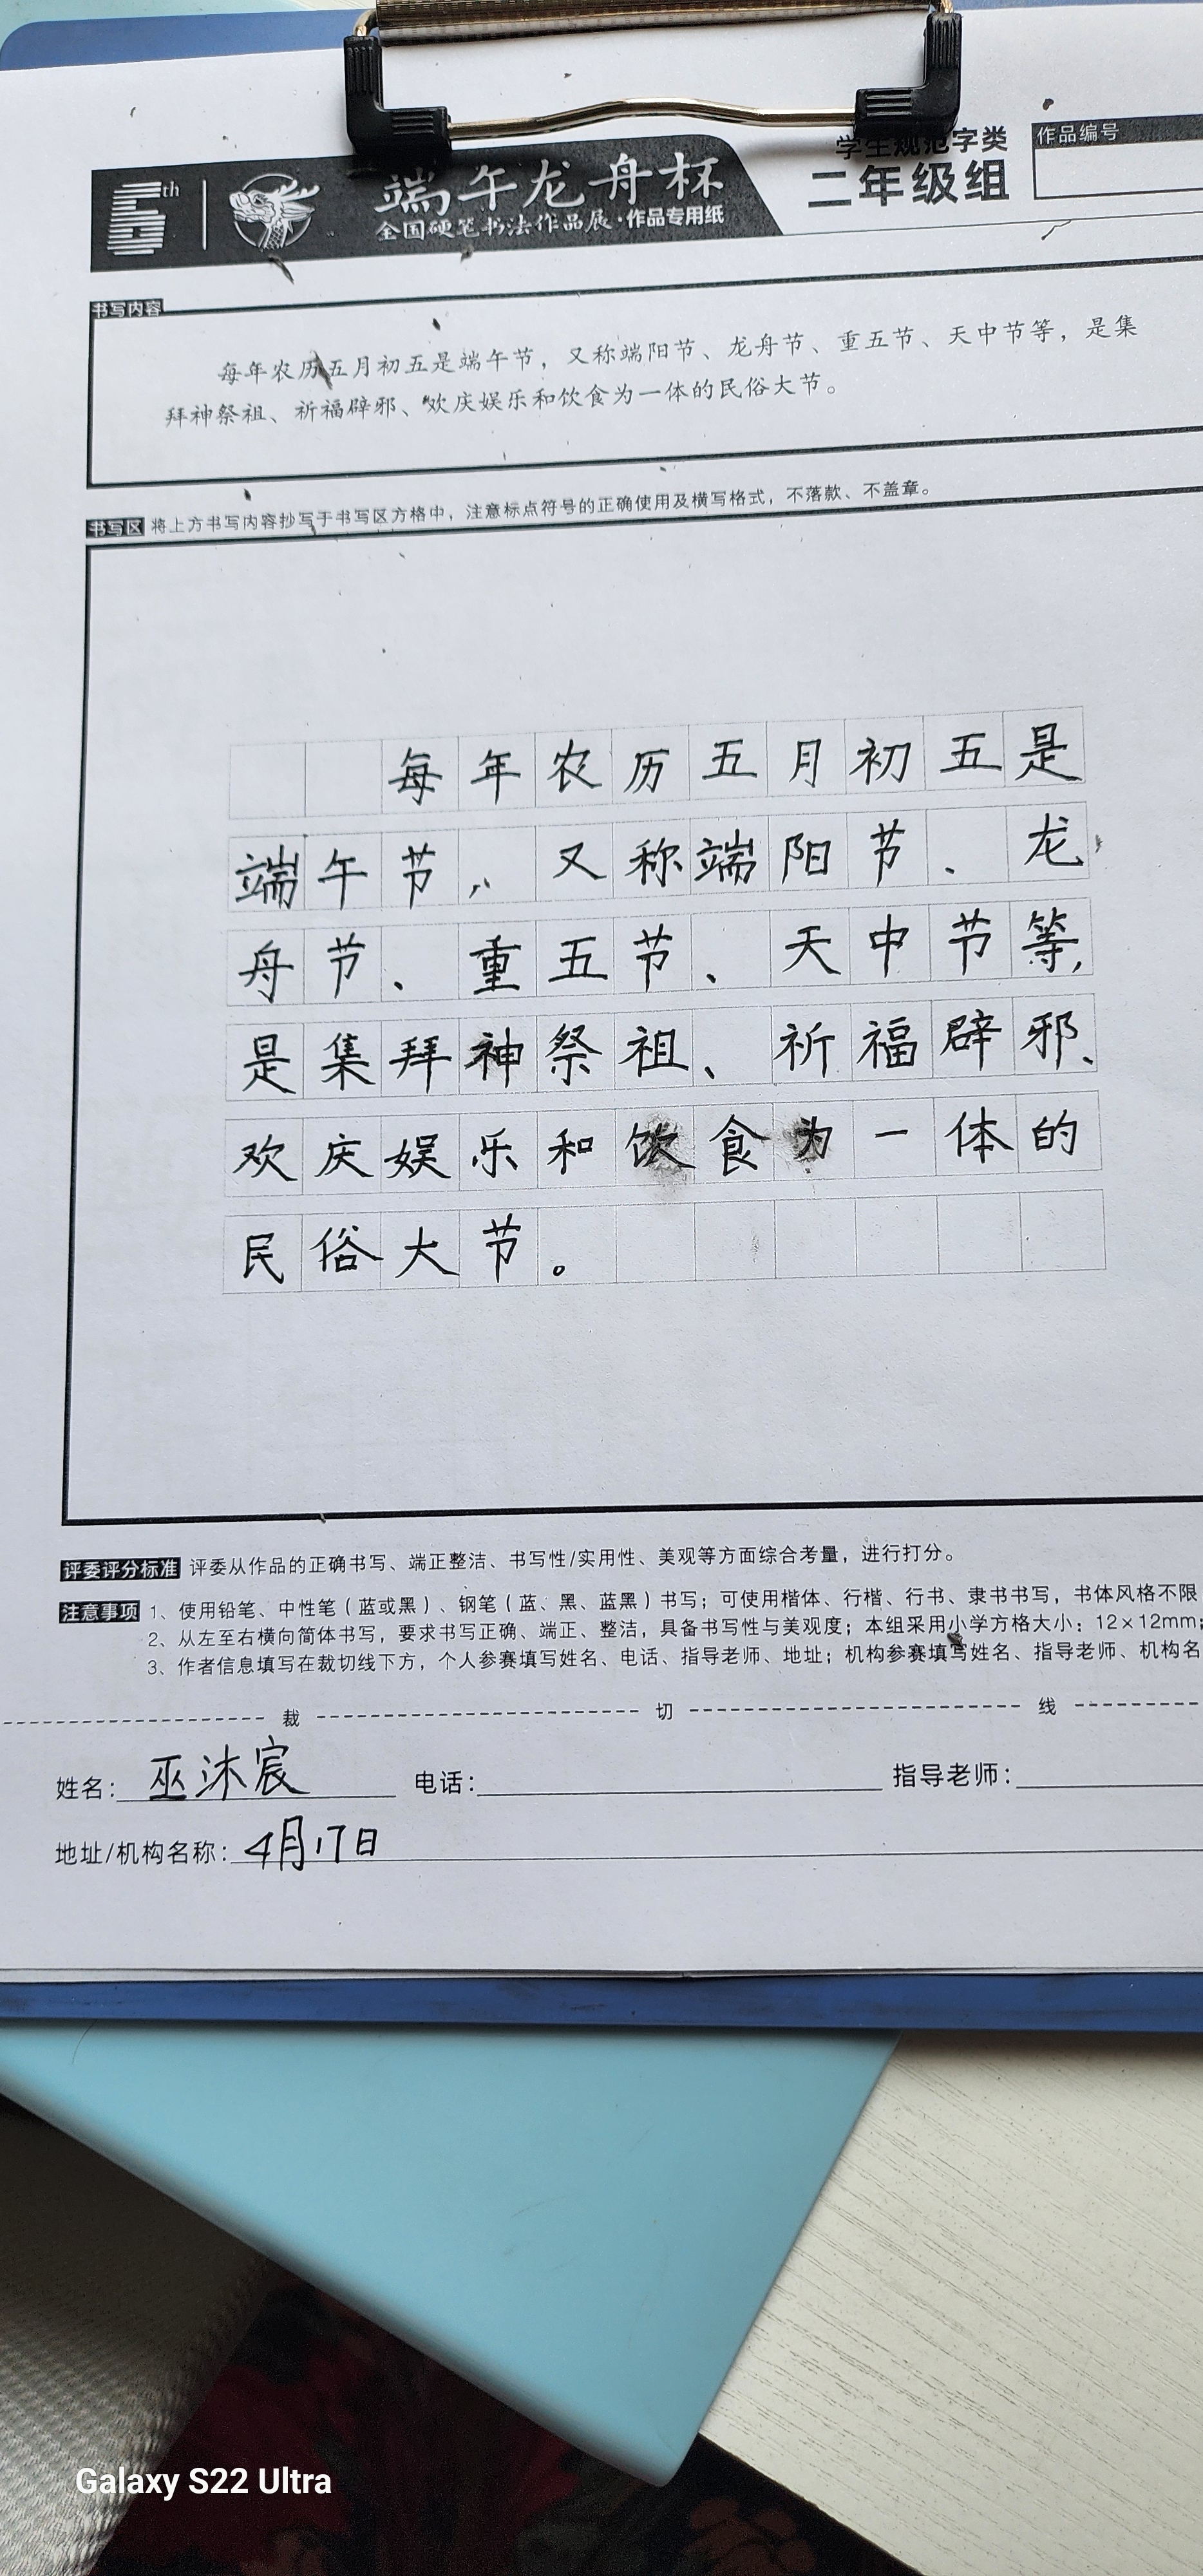 6th
端午龙舟杯
全国硬笔书法作品展·作品专用纸
学生规范字类
二年级组
作品编号
书写内容
每年农历五月初五是端午节，又称端阳节、龙舟节、重五节、天中节等，是集
拜神祭祖、祈福辟邪、欢庆娱乐和饮食为一体的民俗大节。
书写区 将上方书写内容抄写于书写区方格中，注意标点符号的正确使用及横写格式，不落款、不盖章。
每年农历五月初五是
端午节，又称端阳节、龙
舟节、重五节、天中节等，
是集拜神祭祖、祈福辟邪、
欢庆娱乐和饮食为一体的
民俗大节。
评委评分标准 评委从作品的正确书写、端正整洁、书写性/实用性、美观等方面综合考量，进行打分。
注意事项 1、使用铅笔、中性笔（蓝或黑）、钢笔（蓝、黑、蓝黑）书写；可使用楷体、行楷、行书、隶书书写，书体风格不限
2、从左至右横向简体书写，要求书写正确、端正、整洁，具备书写性与美观度；本组采用小学方格大小：12×12mm；
3、作者信息填写在裁切线下方，个人参赛填写姓名、电话、指导老师、地址；机构参赛填写姓名、指导老师、机构名
裁 切 线
姓名：巫沐宸 电话： 指导老师：
地址/机构名称：4月17日
Galaxy S22 Ultra